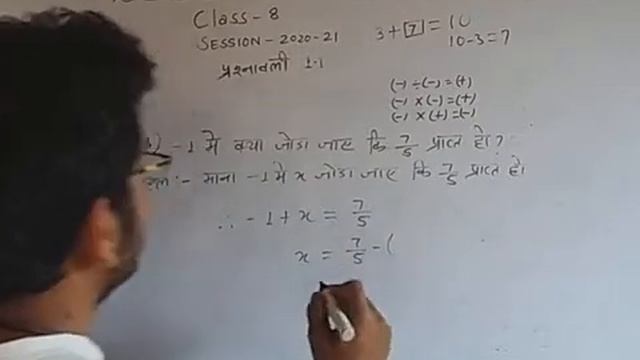 Class-8
SESSION-2020-21
प्रश्नावली 1.1
3+7=10
10-3=7
(-) ÷ (-) = (+)
(-) × (-) = (+)
(-) × (+) = (-)
-1 में क्या जोड़ा जाए कि 7/5 प्राप्त हो?
हल :- माना -1 में x जोड़ा जाए कि 7/5 प्राप्त हो।
∴ -1 + x = 7/5
x = 7/5 - (